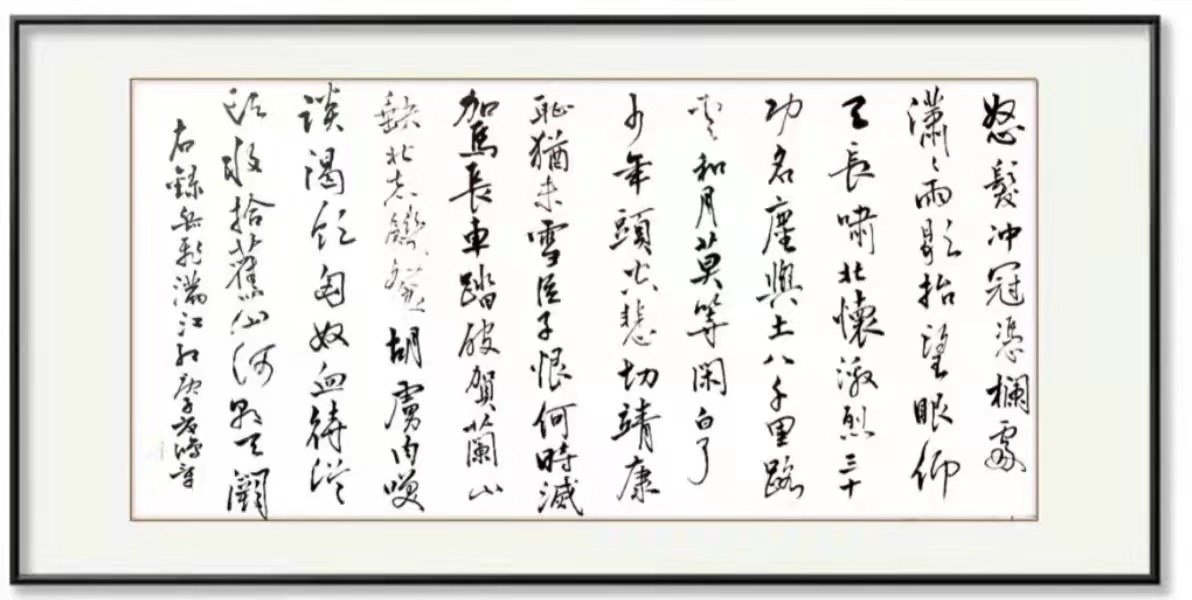 怒髮冲冠憑欄處
瀟〻雨歇抬望眼仰
天長嘯壯懷激烈三十
功名塵與土八千里路
雲和月莫等閑白了
少年頭空悲切靖康
恥猶未雪臣子恨何時滅
駕長車踏破賀蘭山
缺壯志飢餐胡虜肉笑
談渴飲匈奴血待從
頭收拾舊山河朝天闕
右錄岳飛滿江紅庚子